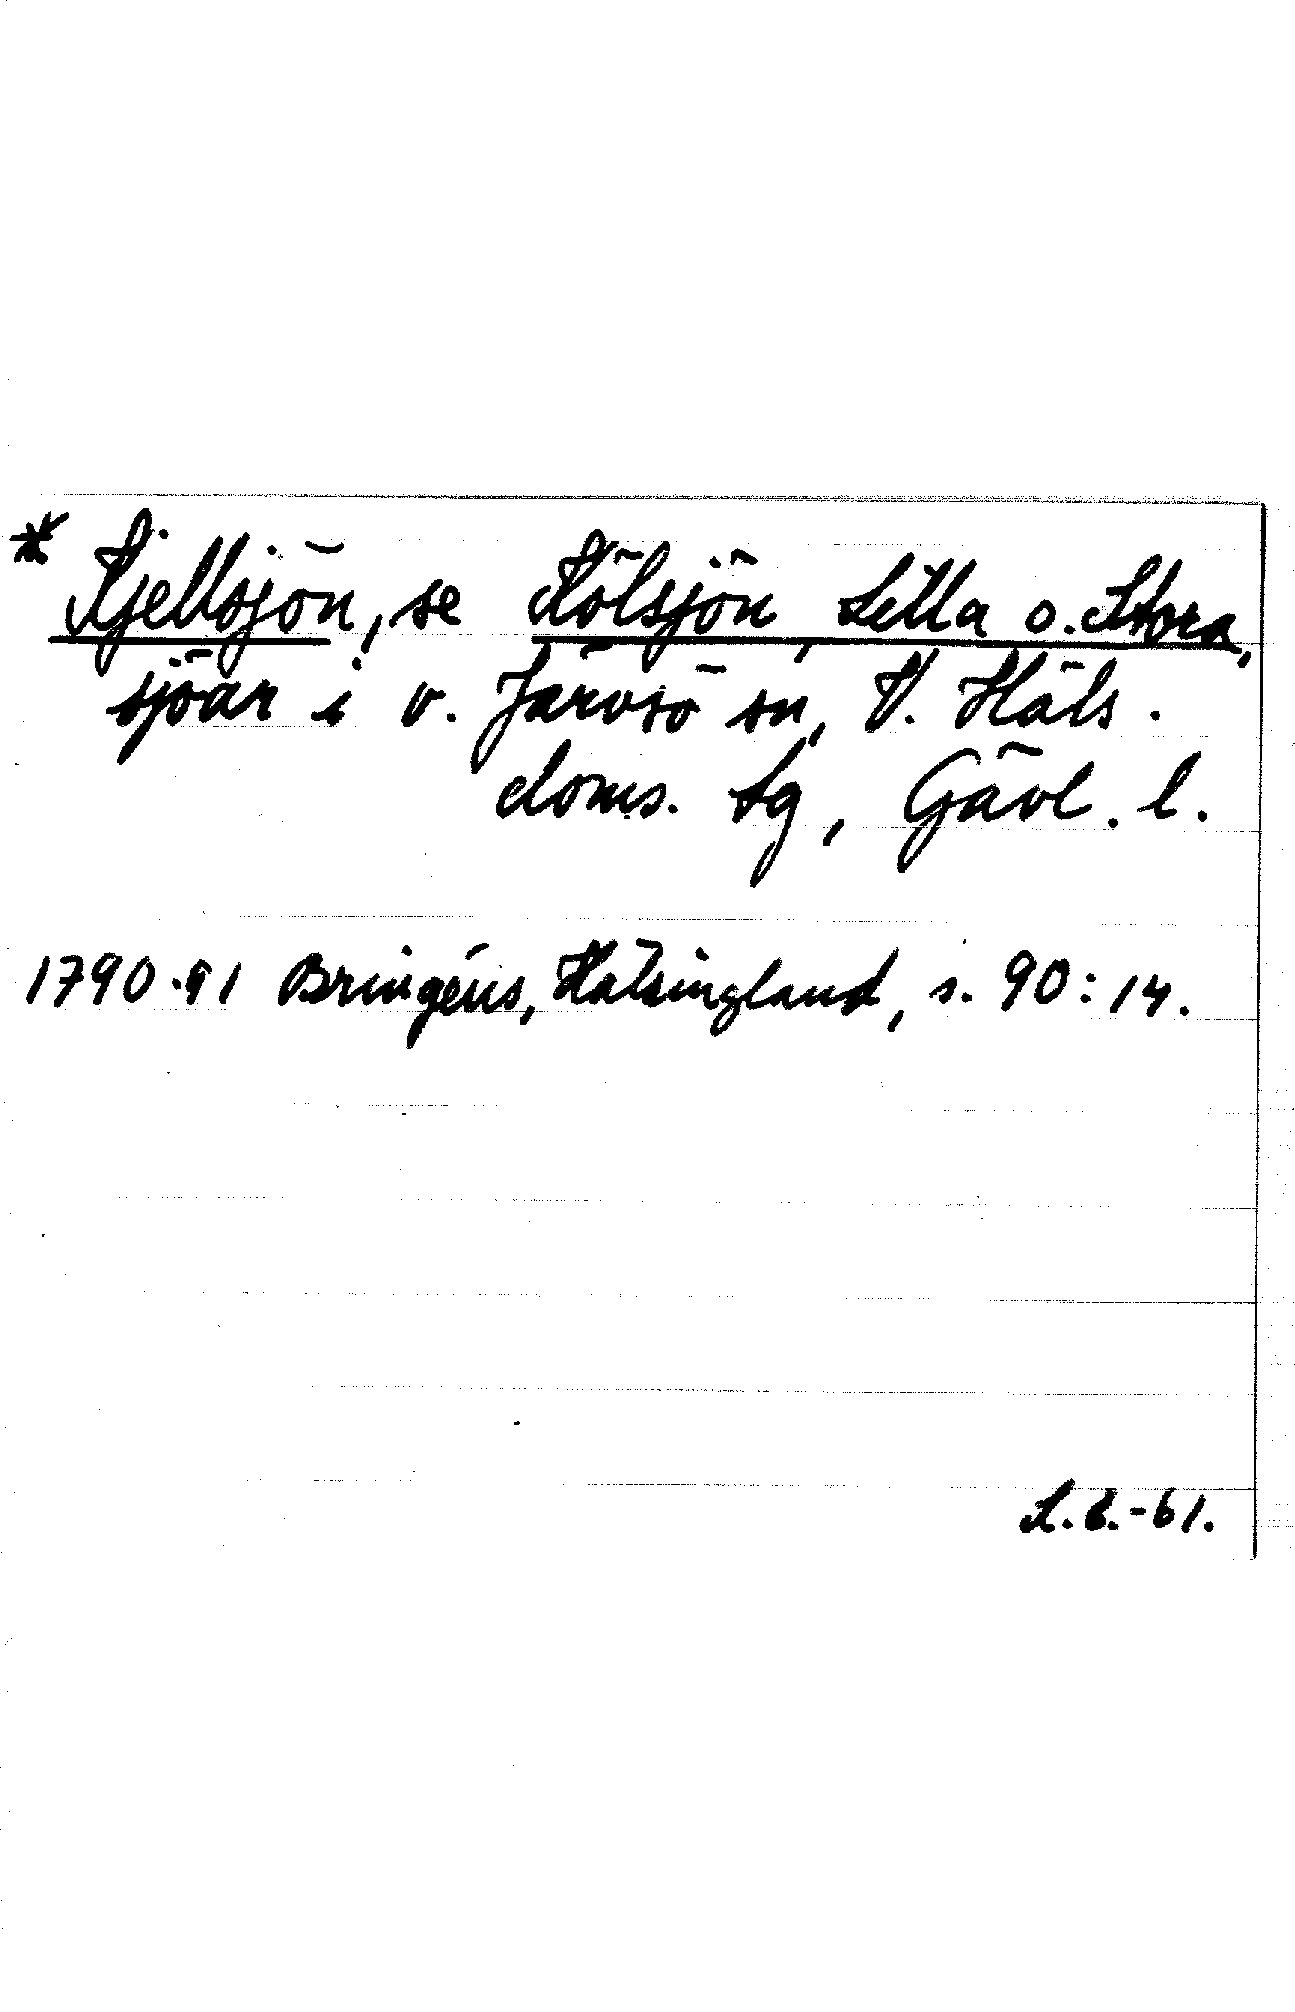 * Kjellsjön, se Kölsjön, Lilla o. Stora,
sjöar i v. Järvsö sn, V. Häls.
doms. sg, Gävl. l.
1790-91 Bringéus, Hälsingland, s. 90:14.
S.B.-61.